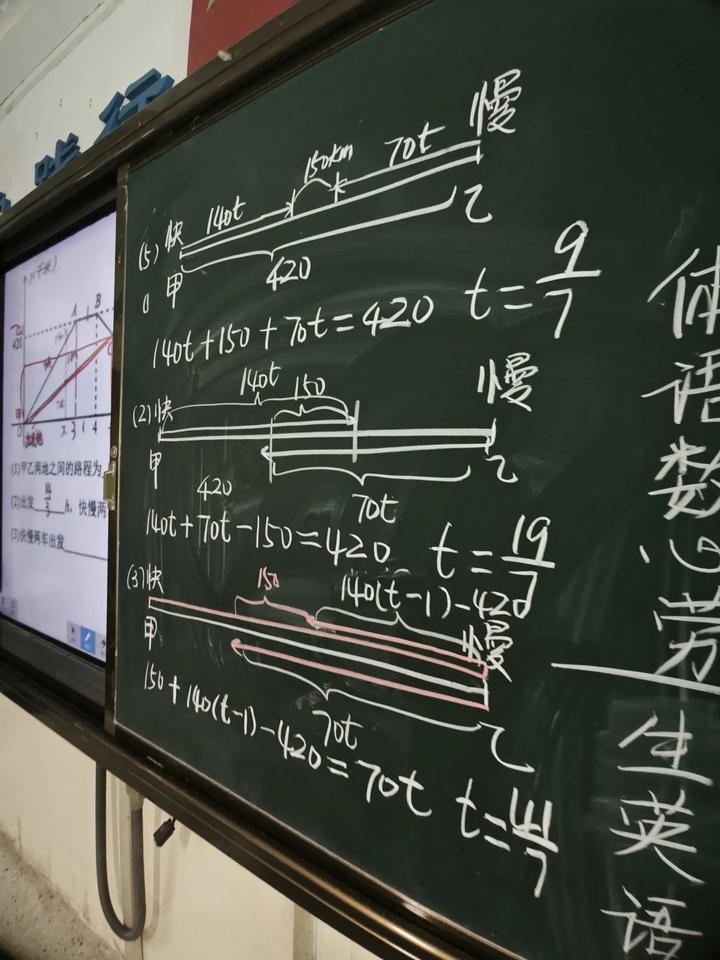 慢
150km
70t
140t
(5) 快
① 甲
420
乙
140t+150+70t=420 t=9/7
140t
150
(2) 快
慢
甲
乙
420
70t
140t+70t-150=420 t=19/7
(3) 快
150
140(t-1)-420
慢
甲
70t
乙
150+140(t-1)-420=70t t=41/7
体
语
数
心
劳
生
英
语
行
420
A
B
(1)甲乙两地之间的路程为
(2)出发 14/3 h, 快慢两
(3)快慢两车出发